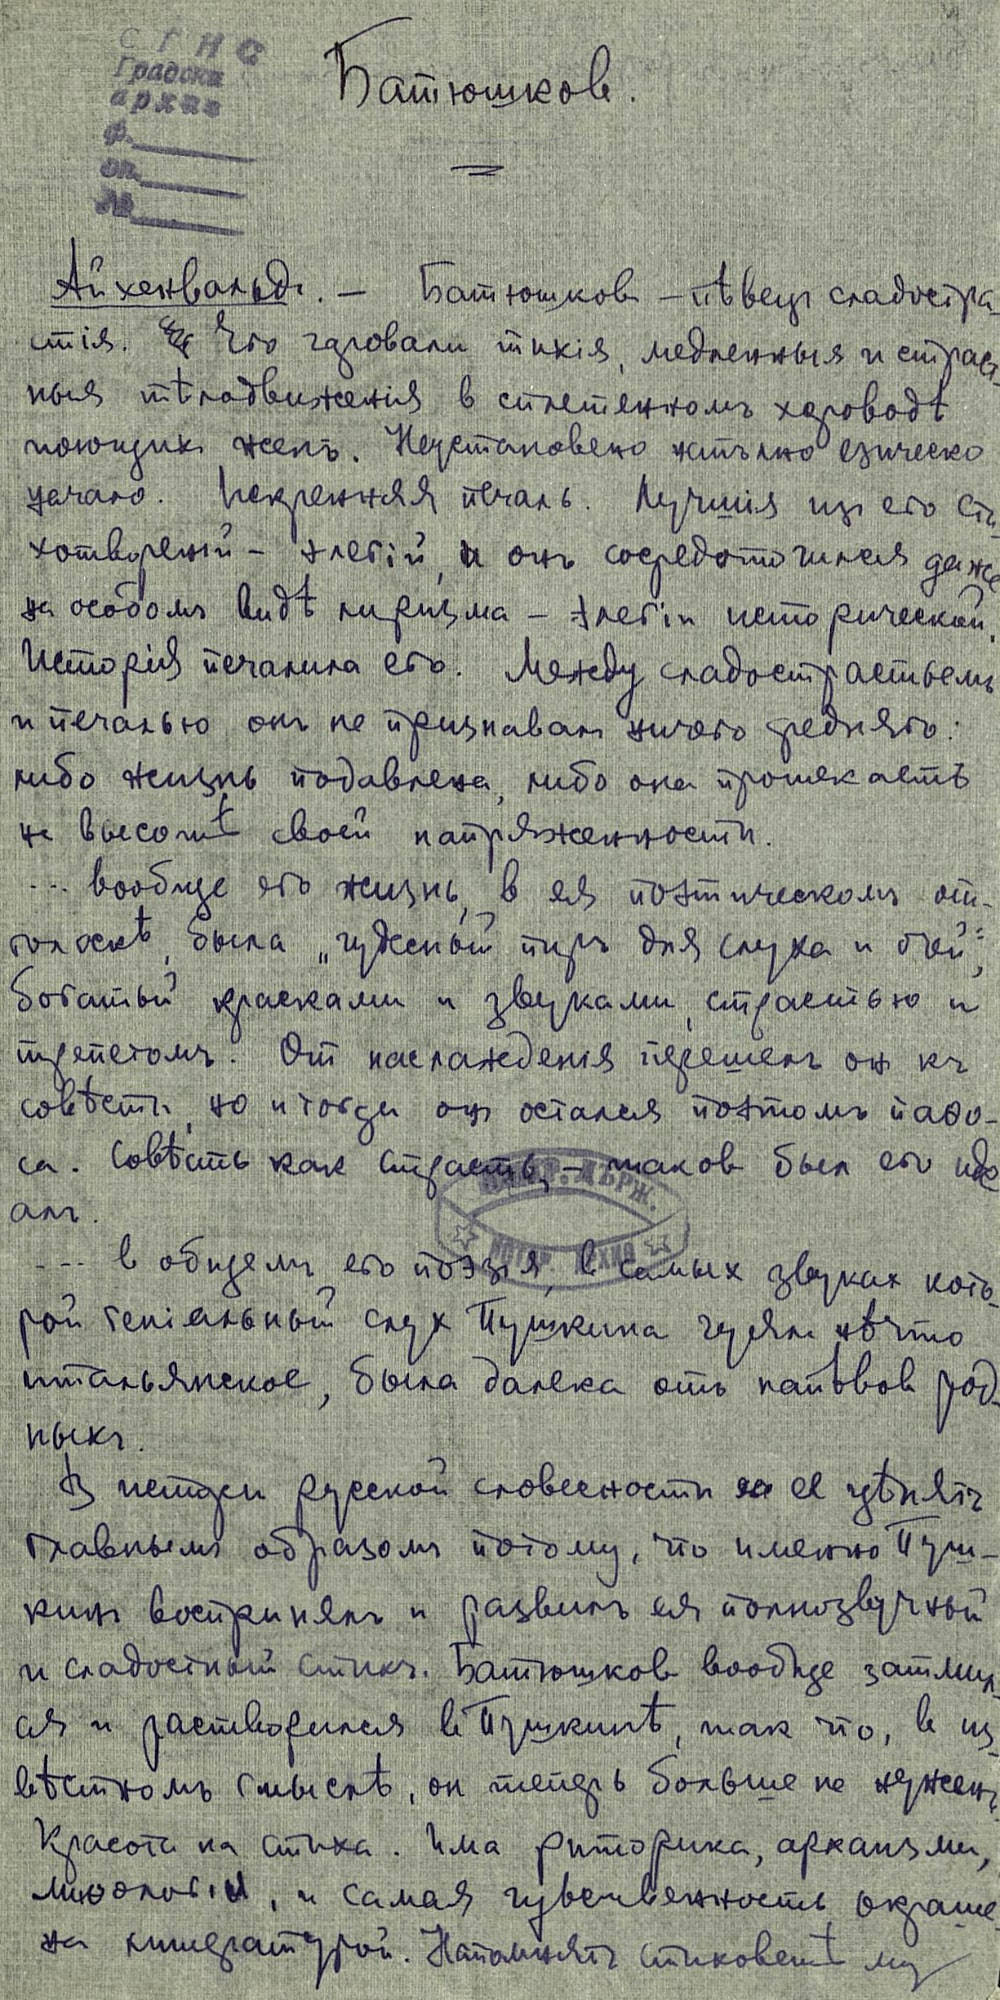 СГНС
Градски
архив
ф.
оп.
№
Батюшков.
Айхенвальдъ. — Батюшков — пѣвец сладостра-
стія. Его чаровали тихія, медленныя и страст
ныя тѣлодвиженія в сплетенномъ хороводѣ
поющихъ женъ. Неустановено жътвно езическо
начало. Искренняя печаль. Лучшія из его сти
хотвореній — элегій, и онъ сосредоточился даже
на особомъ видѣ лиризма — элегіи исторической.
Исторія печалила его. Между сладострастьемъ
и печалью онъ не признавалъ ничего средняго:
либо жизнь подавлена, либо она протекаетъ
на высотѣ своей напряженности.
... вообще его жизнь, в ея поэтическомъ от-
голоскѣ, была „чудесный пиръ для слуха и очей“,
богатый красками и звуками, страстью и
трепетомъ. От наслажденія перешелъ он къ
совѣсти, но и тогда онъ остался поэтомъ паѳо-
са. Совѣсть как страсть, — таков был его иде
алъ.
... в общемъ его поэзія, в самых звуках кото-
рой геніальный слух Пушкина чуялъ нѣчто
итальянское, была далека отъ напѣвов род-
ныхъ.
В исторіи русской словесности ее цѣнятъ
главнымъ образомъ потому, что именно Пуш-
кинъ воспринялъ и развилъ ея полнозвучный
и сладостный стихъ. Батюшков вообще затмил-
ся и растворился в Пушкинѣ, так что, в из-
вѣстномъ смыслѣ, он теперь больше не нуженъ.
Красота на стиха. Има риторика, архаизми,
миѳологіи, и самая чувственность окраше
на литературой. Напомнятъ стиховетѣ му
ИСТОР. АРХИВ